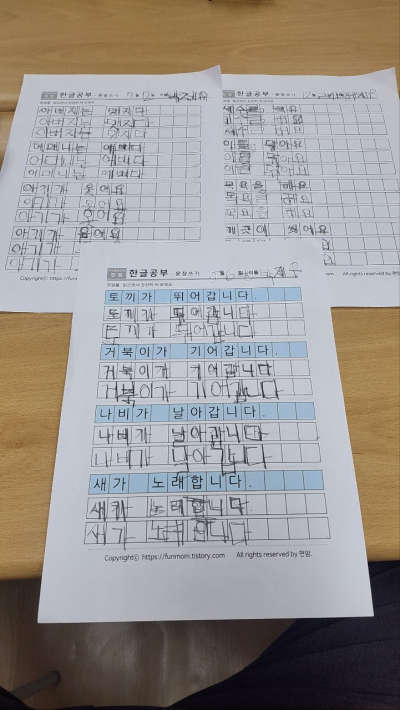 한글공부 문장쓰기
아버지는 멋지다
아버지는 멋지다
아버지는 멋지다
어머니는 예쁘다
어머니는 예쁘다
어머니는 예쁘다
아기가 웃어요
아기가 웃어요
아기가 웃어요
아기가 울어요
아기가
아기가
Copyrightⓒ https://fun
한글공부 문장쓰기
세수를 해요
세수를 해요
이를 닦아요
이를 닦아요
이를 닦아요
목욕을 해요
목욕을 해요
목욕을 해요
깨끗이 씻어요
All rights reserved by 현맘.
한글공부 문장쓰기 월 6 일 이름
토끼가 뛰어갑니다.
토끼가 뛰어갑니다
토끼가 뛰어갑니다
거북이가 기어갑니다.
거북이가 기어갑니다
거북이가 기어갑니다
나비가 날아갑니다.
나비가 날아갑니다
나비가 날아갑니다
새가 노래합니다.
새가 노래합니다
새가 노래합니다
Copyrightⓒ https://funmom.tistory.com All rights reserved by 현맘.